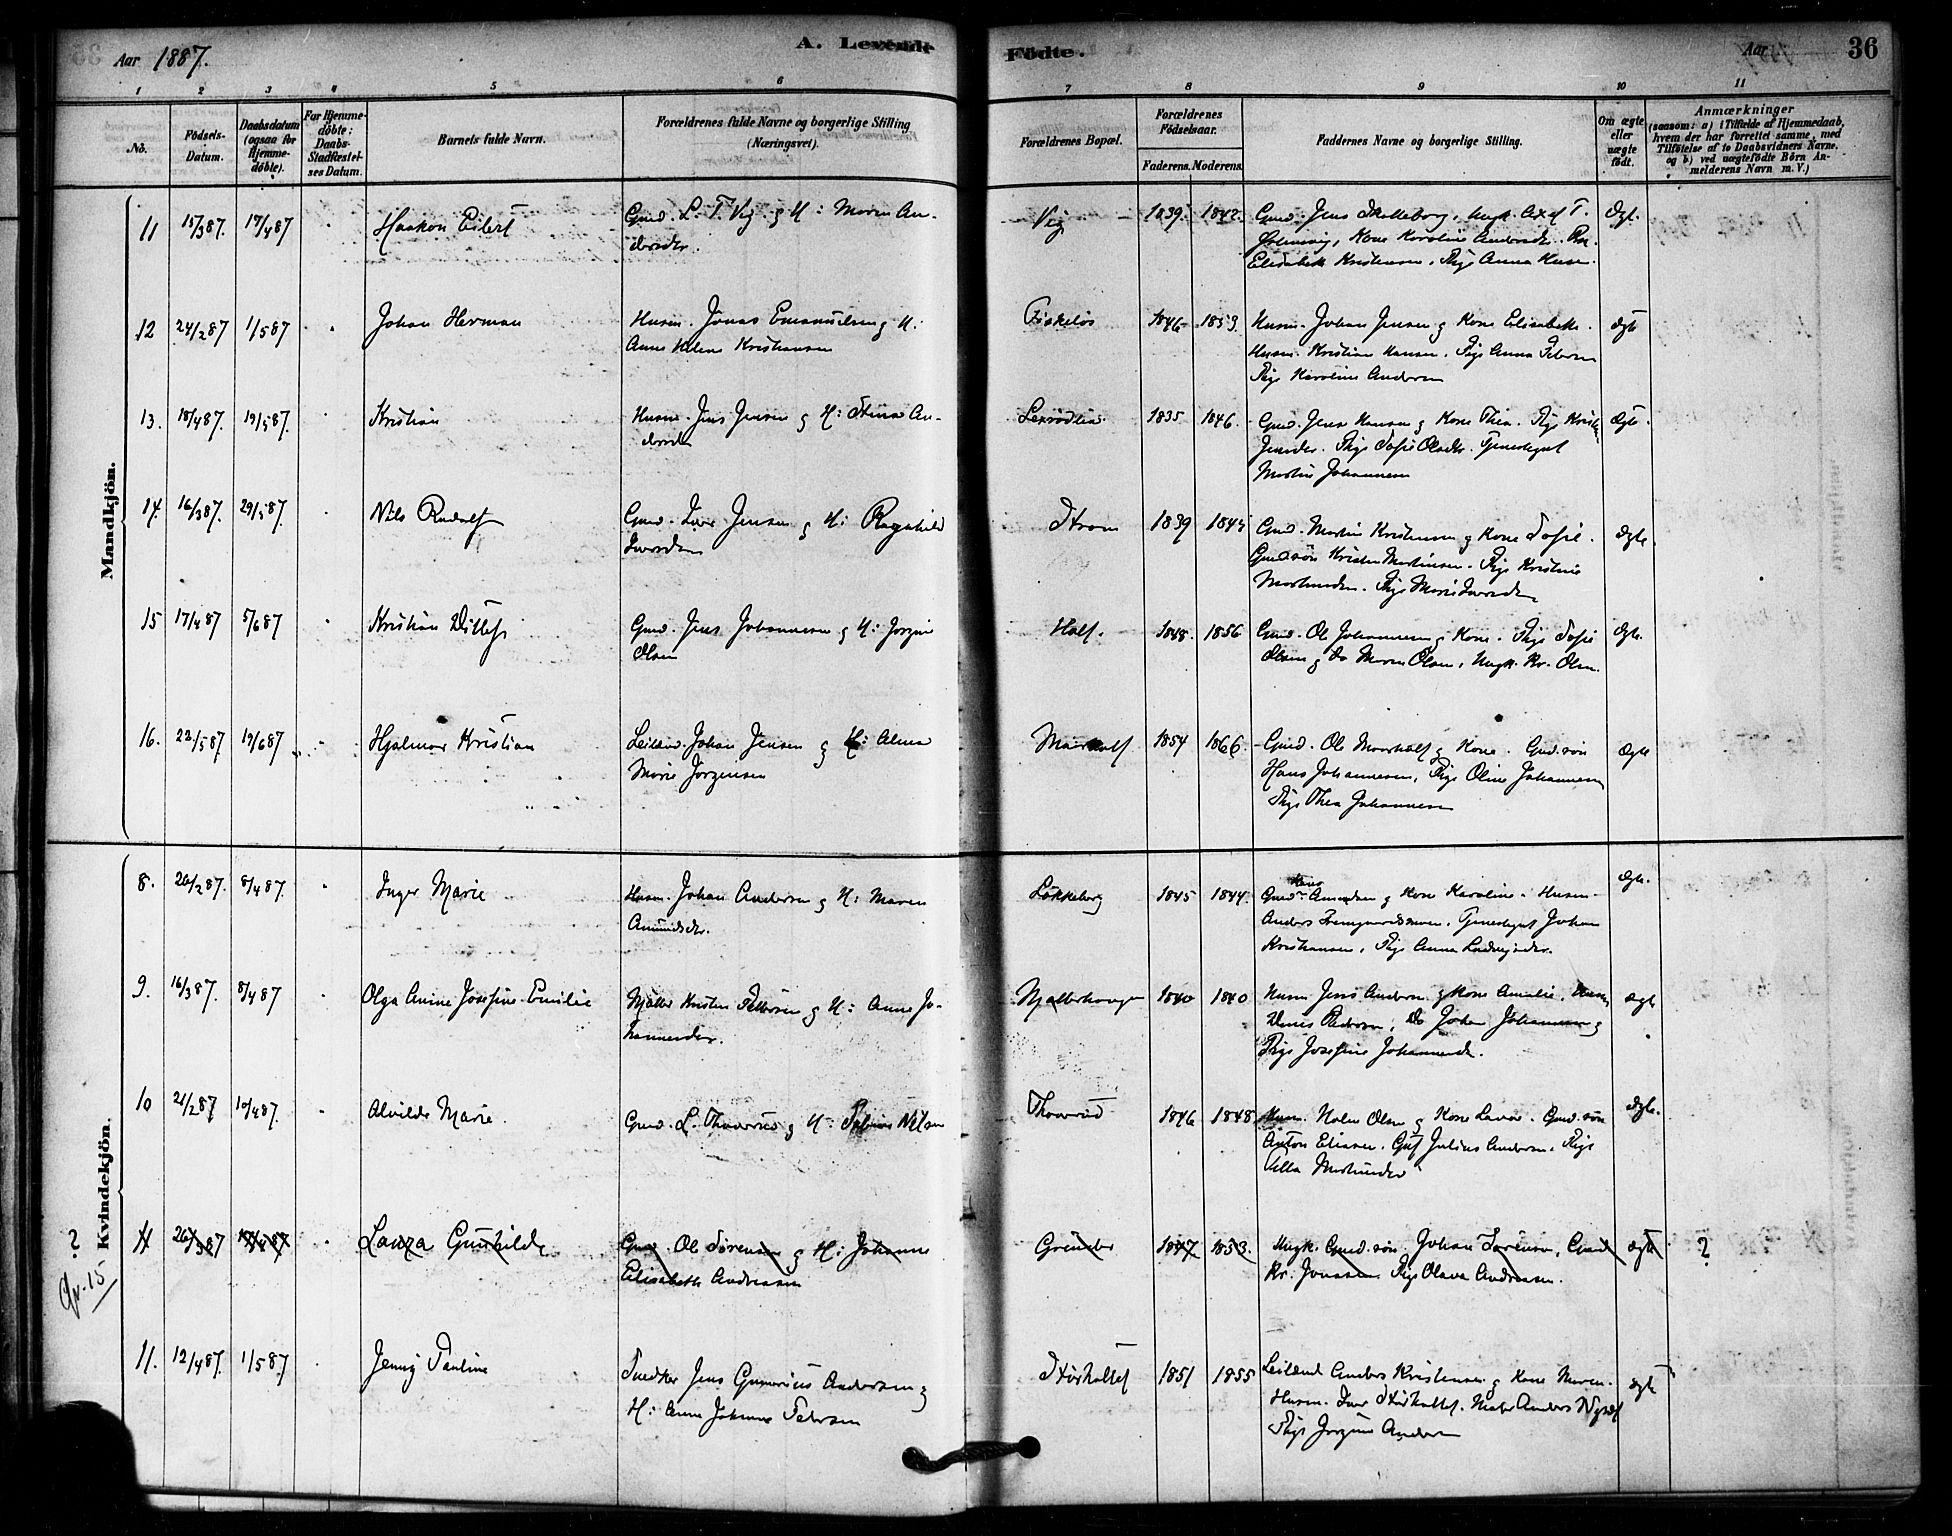 Aar 1887.
A. Levende Fødte.
Aar
36
1 2 3 4 5 6 7 8 9 10 11
No.
Fødsels-Datum.
Daabsdatum (ogsaa for Hjemmedøbte).
For Hjemmedøbte: Daabs-Stadfæstelses Datum.
Barnets fulde Navn.
Forældrenes fulde Navne og borgerlige Stilling (Næringsvei).
Forældrenes Bopæl.
Forældrenes Fødselsaar.
Faderens. Moderens.
Faddernes Navne og borgerlige Stilling.
Om ægte eller uægte født.
Anmærkninger
(saasom: a) i Tilfælde af Hjemmedaab,
hvem der har forrettet samme, med
Tilføielse af to Daabsvidners Navne,
og b) ved uægtefødte Børn An-
melderens Navn m. V.)
Mandkjön.
11 15/3 87. 17/4 87 Haakon Eilert
Gmd. L. T. Vig. og H: Maren An-
dersdtr.
Vig 1839. 1842.
Gmd. Jens Skolleborg, Ungk. Axel T.
Kone Karoline Andersdtr.
Elisabeth Kristensen, Pige Anna
Ægt.
12 24/2 87 1/5 87 Johan Herman
Husm. Jonas Emanuelsen og H:
Anne Helene Kristiansen
Fiskeløs 1846 1853.
Husm. Johan Jensen og Kone Elisabeth.
Husm. Kristian Hansen. Pige Anna Petersen
Pige Karoline Andersen
Ægte
13. 18/4 87 19/5 87. Kristian
Husm. Jens Jensen og H: Stina An-
dersdtr
1835 1846.
Gmd. Jens Hansen og Kone Thea. Pige
Jensdtr. Pige Sofie Olsdtr. Tjenestegut
Martin Johannesen
Ægte.
14. 16/3 87. 29/5 87. Nils Rudolf
Gmd. Iver Jensen og H: Ragnhild
Iversdtr
Strøm 1839 1845
Gmd. Martin Kristensen og Kone Sofie.
Gmdsøn Kristen Martinsen. Pige Kristine
Martinsdtr. Pige Marie Iversdtr
Ægte.
15 17/4 87 5/6 87 Kristian Ditlef
Gmd. Jens Johannesen og H: Jørgine
Olsen
Holt. 1848. 1856
Gmd. Ole Johannesen og Kone. Pige Sofie
Olsen og do Maren Olsen, Ungk. Kr. Olsen.
Ægte.
16. 22/5 87 19/6 87 Hjalmar Kristian
Leilænd. Johan Jensen og H: Alma
Marie Jørgensen
1854 1866.
Gmd. Ole og Kone. Gmd.søn
Hans Johannesen, Pige Oline Johannesen
Pige Thea Johannesen
Ægte
Kvindekjön.
8. 26/2 87. 8/4 87. Inger Marie
Husm. Johan Andersen og H: Maren
Amundsdtr.
Løkkeberg 1845 1844.
Hans
Gmd. Amundsen og Kone Karoline. Husm.
Anders Tjenestegut Johan
Kristiansen, Pige Anna Ludvigsdtr.
Ægte.
9. 16/3 87. 8/4 87 Olga Anine Josefine Emilie
Møller Kristen Pettersen og H: Anne Jo-
hannesdtr.
1840 1840
Husm. Jens Andersen og Kone Amalie, Husm
Pedersen, Do Johan Johannesen og
Pige Josefine Johannesdtr.
Ægte
10 21/2 87 10/4 87. Alvilde Marie
Gmd. L. Thorsrud og H: Nilsen
Thorsrud 1846 1848
Husm. Olsen og Kone Lava. Gmd.søn
Anton Eliasen. Gut Julius Andersen. Pige
Martinsdtr
Ægte.
?
Gr. 15
11 26/3 87 Laura Gunhilde
Gmd. Ole Sørensen og H: Johanne
Elisabeth Andreasen
1847 1853.
Ungk. Gmd.søn Johan Sørensen, Gmd
Kr. Jonassen. Pige Olava Andreasen.
Ægte ?
11. 12/4 87. 1/5 87 Jenny Pauline
Snedker Jens Gunerius Andersen og
H: Anne Johanne Petersen
1851 1855
Leilænd Anders Kristensen og Kone Maren.
Husm. Iver Anders
Pige Jørgine Andersen
Ægte